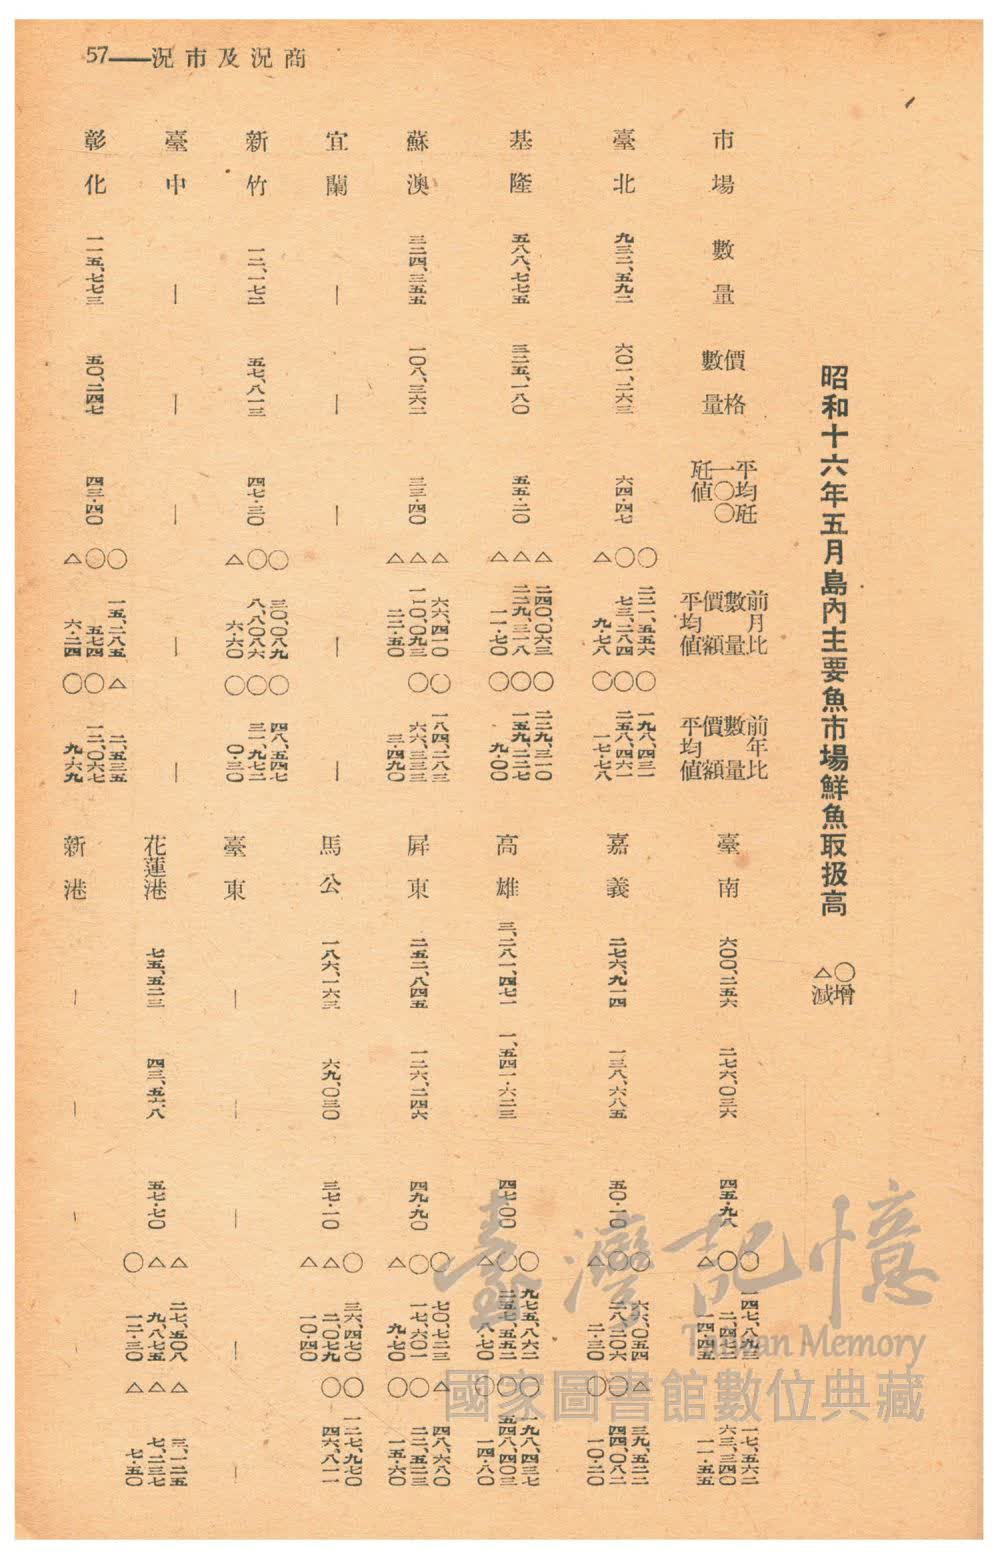 57——況市及況商
昭和十六年五月島內主要魚市場鮮魚取扱高
○增
△減
市場 數量 價格 數量 平均瓩 一〇〇 瓩値 前月比 數量 價額 平均値 前年比 數量 價額 平均値
臺北 九三二、五九二 六〇一、二六三 六四・四七 ○二二一、五五六 ○七三、二八四 △九・七八 ○一九八、四三一 ○二五八、四六一 ○一七・七八
基隆 五八八、七七五 三二五、一八〇 五五・二〇 △二四〇、〇六三 △二二九、三一八 △一一・七〇 ○二二九、三一〇 ○一五九、二二七 ○九・〇〇
蘇澳 三二四、三五五 一〇八、三六二 三三・四〇 △六六、四一〇 △一一〇、〇九三 △二二・五〇 ○一八四、二八三 ○六六、三三三 三四九〇
宜蘭 — — — — —
新竹 一二、一七二 五七、八一三 四七・三〇 ○三〇、〇八九 ○八、八〇八六 △六・六〇 ○四八、五四七 ○三一、九七二 ○〇・三〇
臺中 — — — — —
彰化 一一五、七七三 五〇、二四七 四三・四〇 ○一五、二八五 ○五七四 △六・二四 △二、五三五 ○一二、〇六七 ○九・六九
臺南 六〇〇、二五六 二七六、〇三六 四五・九八 ○一四七、八九三 ○二、四七二 △一四・四五 一七、五六二 六三、三四〇 一一・五五
嘉義 二七六、九一四 一三八、六八五 五〇・一〇 ○六六、〇五四 ○二八、二〇六 △二・三〇 △三九、五二二 ○四四、〇八二 ○一〇・二〇
高雄 三、二八一、四七一 一、五四一・六二三 四七・〇〇 ○九七五、八六二 ○二五七、五五二 △八・七〇 ○一九八、四三七 ○五四八、四〇三 ○一四・八〇
屏東 二五二、八四五 一二六、二四六 四九・九〇 ○七〇、七二三 ○一七、六〇一 △九・七〇 △四八、六八〇 ○二二、五二三 ○一五・六〇
馬公 一八六、一六三 六九、〇三〇 三七・一〇 ○三六、四七〇 △二、〇七九 △一〇・四〇 ○一二七、九七〇 ○四六、八一一
臺東 — — — — —
花蓮港 七五、五二三 四三、五六八 五七・七〇 △二七、五〇八 △九、八七五 ○一二・三〇 △三、一二五 △七、二三七 △七・五〇
新港 — — — — —
臺灣記憶
Taiwan Memory
國家圖書館數位典藏